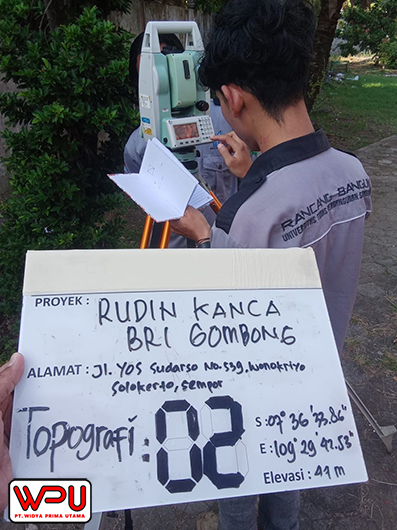 RANCANG BANGUN
UNIVERSITAS
PROYEK : RUDIN KANCA
BRI GOMBONG
ALAMAT : Jl. YOS Sudarso No.539, Wonokriyo
Solokerto, Sempor
Topografi : 02
S : 07° 36' 33.86"
E : 109° 29' 42.53"
Elevasi : 44 m
WPU
PT. WIDYA PRIMA UTAMA